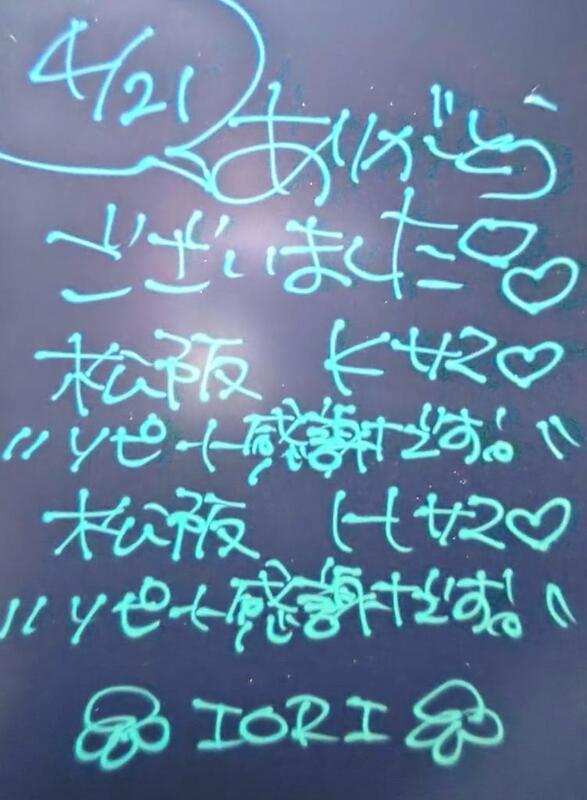 4/21
ありがとう
ございました♡♡
松阪 Kサマ♡
〃リピート感謝です。〃
松阪 Hサマ♡
〃リピート感謝です。〃
IORI